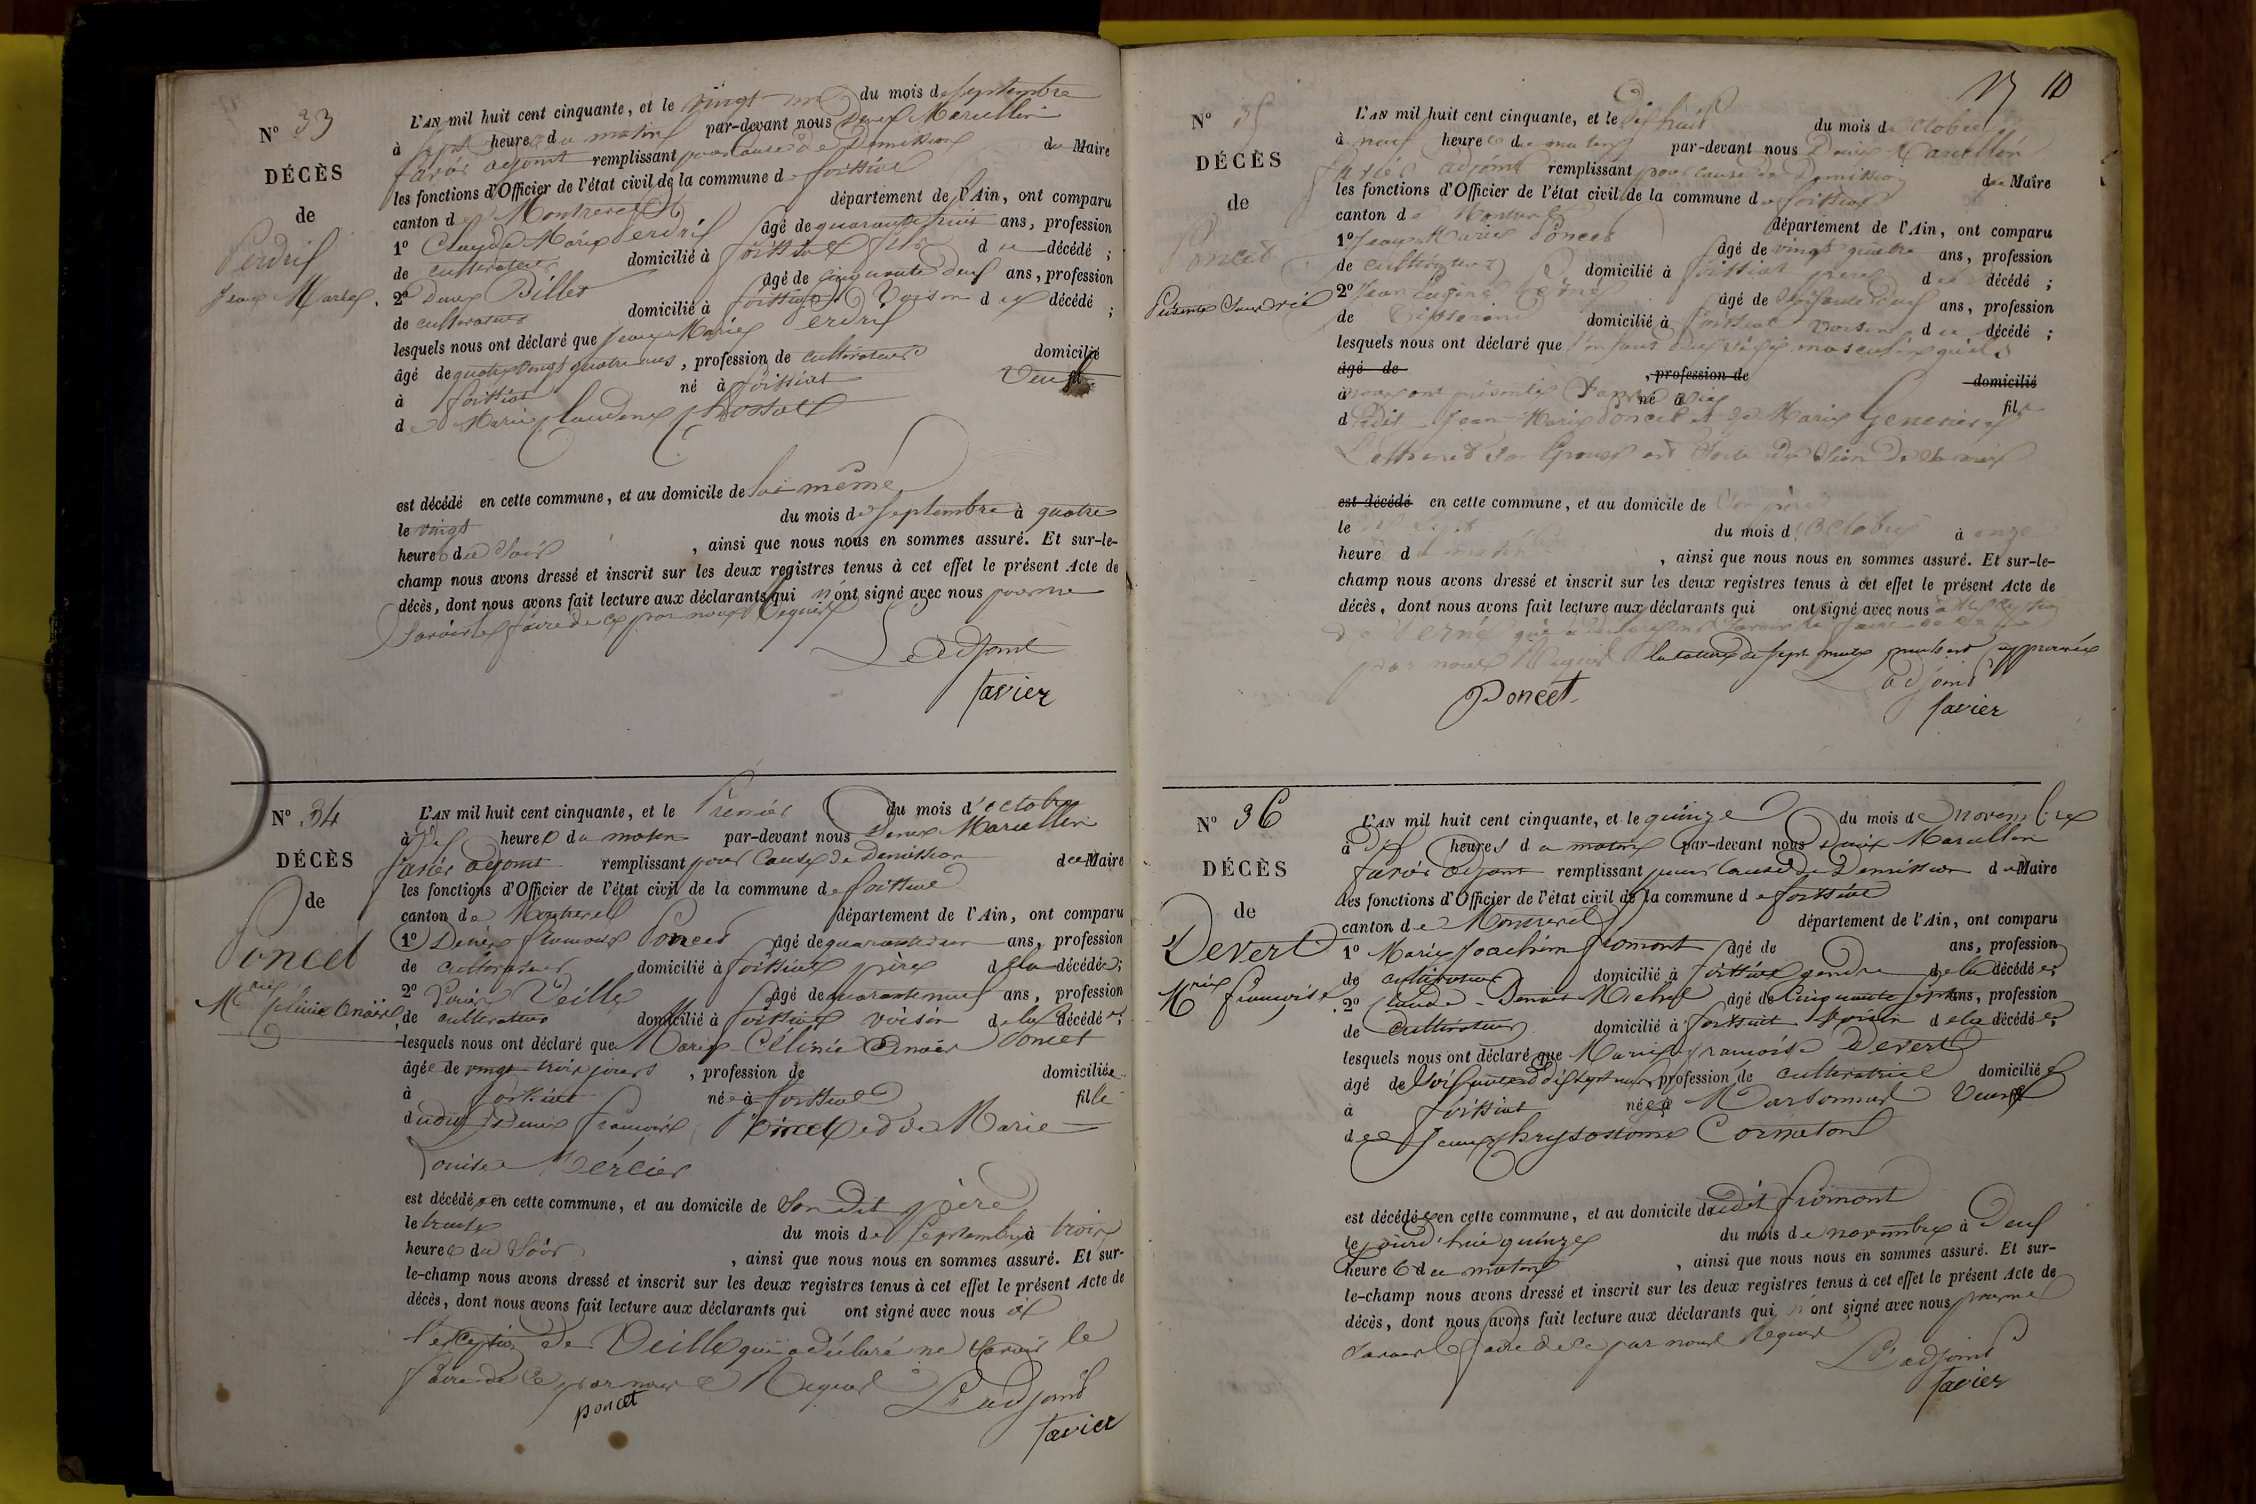 N° 33
DÉCÈS
de
Perdrix
Jean Marie.
L'AN mil huit cent cinquante, et le vingt un du mois de Septembre
à sept heures du matin par-devant nous Denis Marcellin
Favier adjoint remplissant pour cause de Démission du Maire
les fonctions d'Officier de l'état civil de la commune de foissiat
canton de Montrevel département de l'Ain, ont comparu
1° Claude Marie Perdrix âgé de quarante huit ans, profession
de cultivateur domicilié à foissiat fils du décédé ;
2° Denis Billet âgé de cinquante deux ans, profession
de cultivateur domicilié à foissiat Voisin du décédé ;
lesquels nous ont déclaré que Jean Marie Perdrix
âgé de quatre vingt quatre ans, profession de cultivateur domicilié
à foissiat né à foissiat Veuf
de Marie Claudine Chossat
est décédé en cette commune, et au domicile de lui même
le vingt du mois de Septembre à quatre
heures du Soir, ainsi que nous nous en sommes assuré. Et sur-le-
champ nous avons dressé et inscrit sur les deux registres tenus à cet effet le présent Acte de
décès, dont nous avons fait lecture aux déclarants qui n'ont signé avec nous pour ne
Savoir le faire de ce par nous Requis
L'adjoint
favier
N° 34
DÉCÈS
de
Poncet
Marie Célinie
L'AN mil huit cent cinquante, et le Premier du mois d'octobre
à dix heures du matin par-devant nous Denis Marcellin
favier adjoint remplissant pour Cause de Démission du Maire
les fonctions d'Officier de l'état civil de la commune de foissiat
canton de Montrevel département de l'Ain, ont comparu
1° Denis françois Poncet âgé de quarante ans, profession
de cultivateur domicilié à foissiat père de la décédée ;
2° Veille âgé de quarante neuf ans, profession
de cultivateur domicilié à foissiat voisin de la décédée ;
lesquels nous ont déclaré que Marie Célinie Poncet
âgée de vingt trois jours, profession de domiciliée
à foissiat née à foissiat fille
dudit Denis françois Poncet et de Marie
Louise Mercier
est décédée en cette commune, et au domicile de Son Dit père
le trente du mois de Septembre à trois
heures du Soir, ainsi que nous nous en sommes assuré. Et sur-
le-champ nous avons dressé et inscrit sur les deux registres tenus à cet effet le présent Acte de
décès, dont nous avons fait lecture aux déclarants qui ont signé avec nous à
l'exception de Veille qui a déclaré ne Savoir le
faire de ce par nous Requis
poncet
L'adjoint
favier
10
N° 35
DÉCÈS
de
Poncet
Présenté Sans vie
L'AN mil huit cent cinquante, et le Dix huit du mois d'octobre
à neuf heures du matin par-devant nous Denis Marcellin
favier adjoint remplissant pour cause de Démission du Maire
les fonctions d'Officier de l'état civil de la commune de foissiat
canton de Montrevel département de l'Ain, ont comparu
1° Jean Marie Poncet âgé de vingt quatre ans, profession
de cultivateur domicilié à foissiat père du décédé ;
2° Jean Eugène Verne âgé de Soixante deux ans, profession
de Tisserand domicilié à foissiat voisin du décédé ;
lesquels nous ont déclaré que l'enfant du Sexe masculin qu'ils
âgé de , profession de domicilié
à nous ont présenté Sans vie né à fils
dudit Jean-Marie Poncet et de Marie
est décédé en cette commune, et au domicile de Son père
le du mois d'Octobre à onze
heure du matin, ainsi que nous nous en sommes assuré. Et sur-le-
champ nous avons dressé et inscrit sur les deux registres tenus à cet effet le présent Acte de
décès, dont nous avons fait lecture aux déclarants qui ont signé avec nous à l'exception
de Verne qui a déclaré ne Savoir le faire de ce
par nous Requis la rature de sept mots approuvée
L'adjoint
Poncet
favier
N° 36
DÉCÈS
de
Devert
Marie françoise
L'AN mil huit cent cinquante, et le quinze du mois de novembre
à dix heures du matin par-devant nous Denis Marcellin
favier adjoint remplissant pour Cause de Démission du Maire
les fonctions d'Officier de l'état civil de la commune de foissiat
canton de Montrevel département de l'Ain, ont comparu
1° Marie Joachim fromont âgé de ans, profession
de cultivateur domicilié à foissiat gendre de la décédée
2° Claude-Benoit Michel âgé de Cinquante sept ans, profession
de Cultivateur domicilié à foissiat Voisin de la décédée ;
lesquels nous ont déclaré que Marie françoise Devert
âgé de Soixante dix sept ans, profession de cultivatrice domiciliée
à foissiat née à Marsonnas Veuve
de Jean Chrysostome Cormaton
est décédée en cette commune, et au domicile dudit fromont
le jourd'hui quinze du mois de novembre à Deux
heures du matin, ainsi que nous nous en sommes assuré. Et sur-
le-champ nous avons dressé et inscrit sur les deux registres tenus à cet effet le présent Acte de
décès, dont nous avons fait lecture aux déclarants qui n'ont signé avec nous pour ne
Savoir le faire de ce par nous Requis
L'adjoint
favier